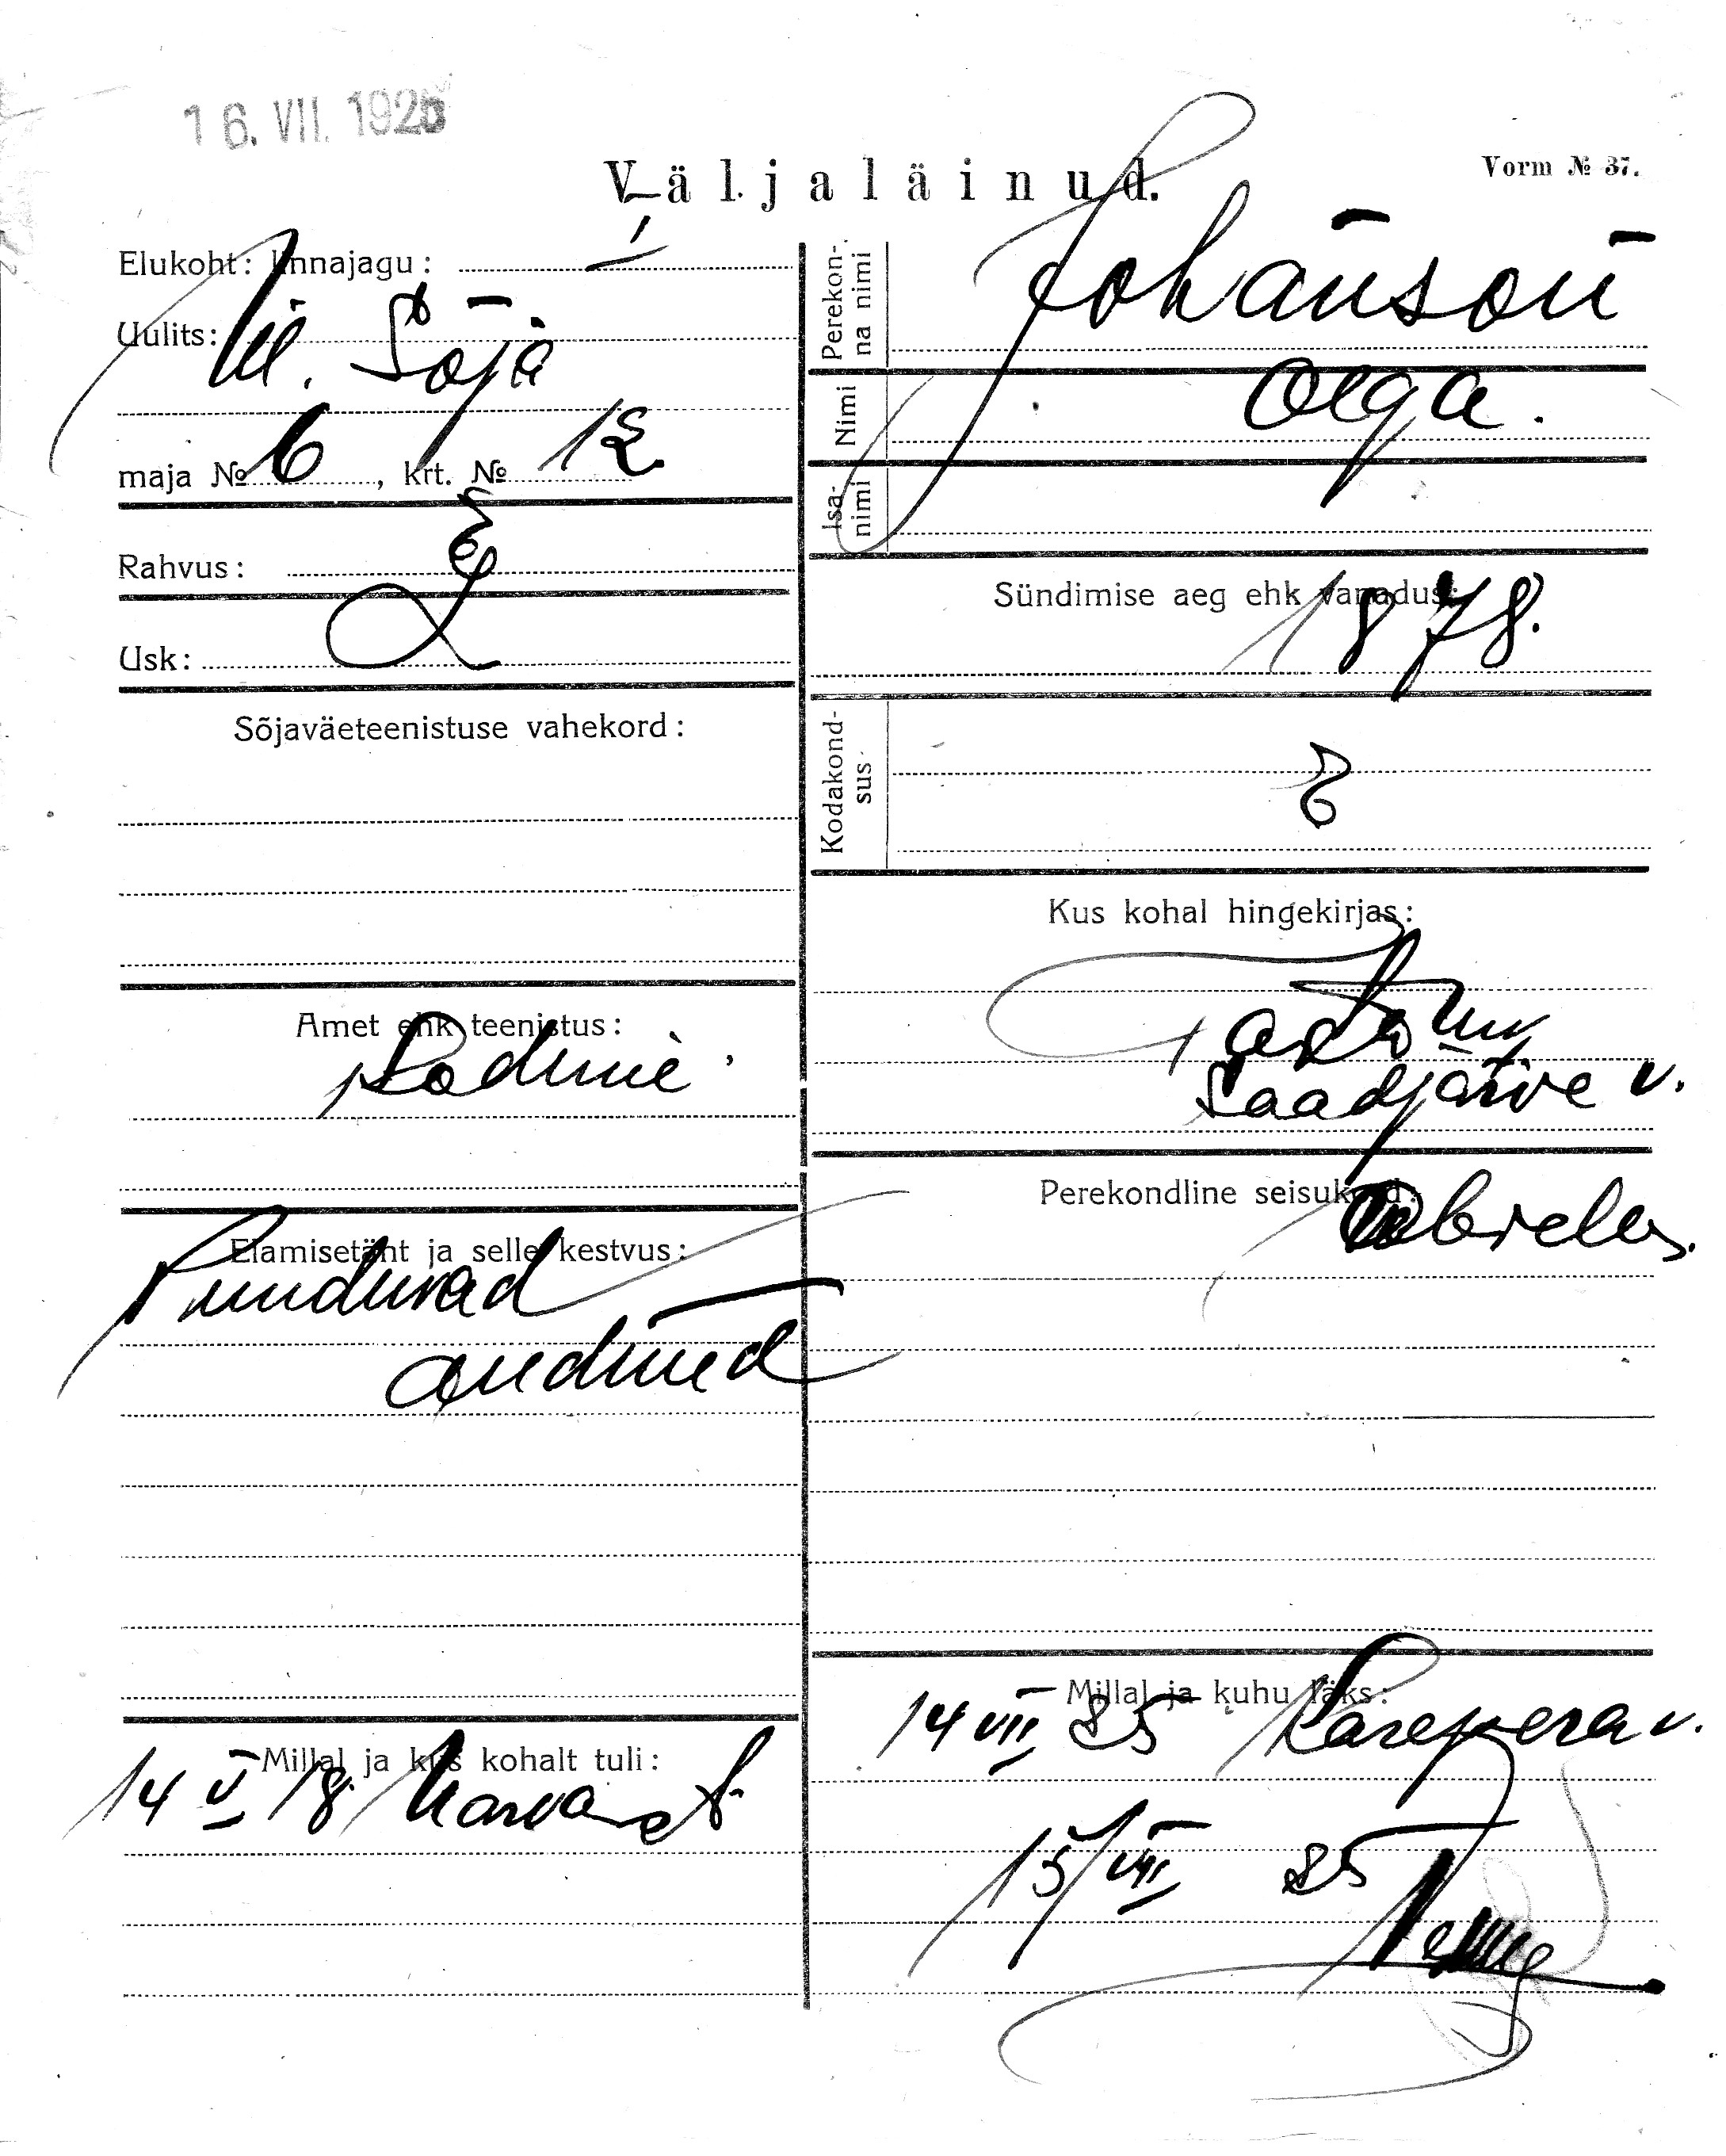 16. VII. 1925
Väljaläinud.
Vorm № 37.
Elukoht: linnajagu: I
Uulits: V. Sõja
maja № 6, krt. № 12
Rahvus: E
Usk: L
Sõjaväeteenistuse vahekord:
Amet ehk teenistus:
Elamisetäht ja selle kestvus:
Puuduvad
andmed
Millal ja kus kohalt tuli:
14 V 18 Narvast
Perekonna nimi
Johanson
Nimi
Olga.
Isanimi
Sündimise aeg ehk vanadus:
1878.
Kodakondsus
E
Kus kohal hingekirjas:
Tartu m.
Saadjärve v.
Perekondline seisukord:
Millal ja kuhu läks:
14 VII 25 Kärepera v.
15/VII 25